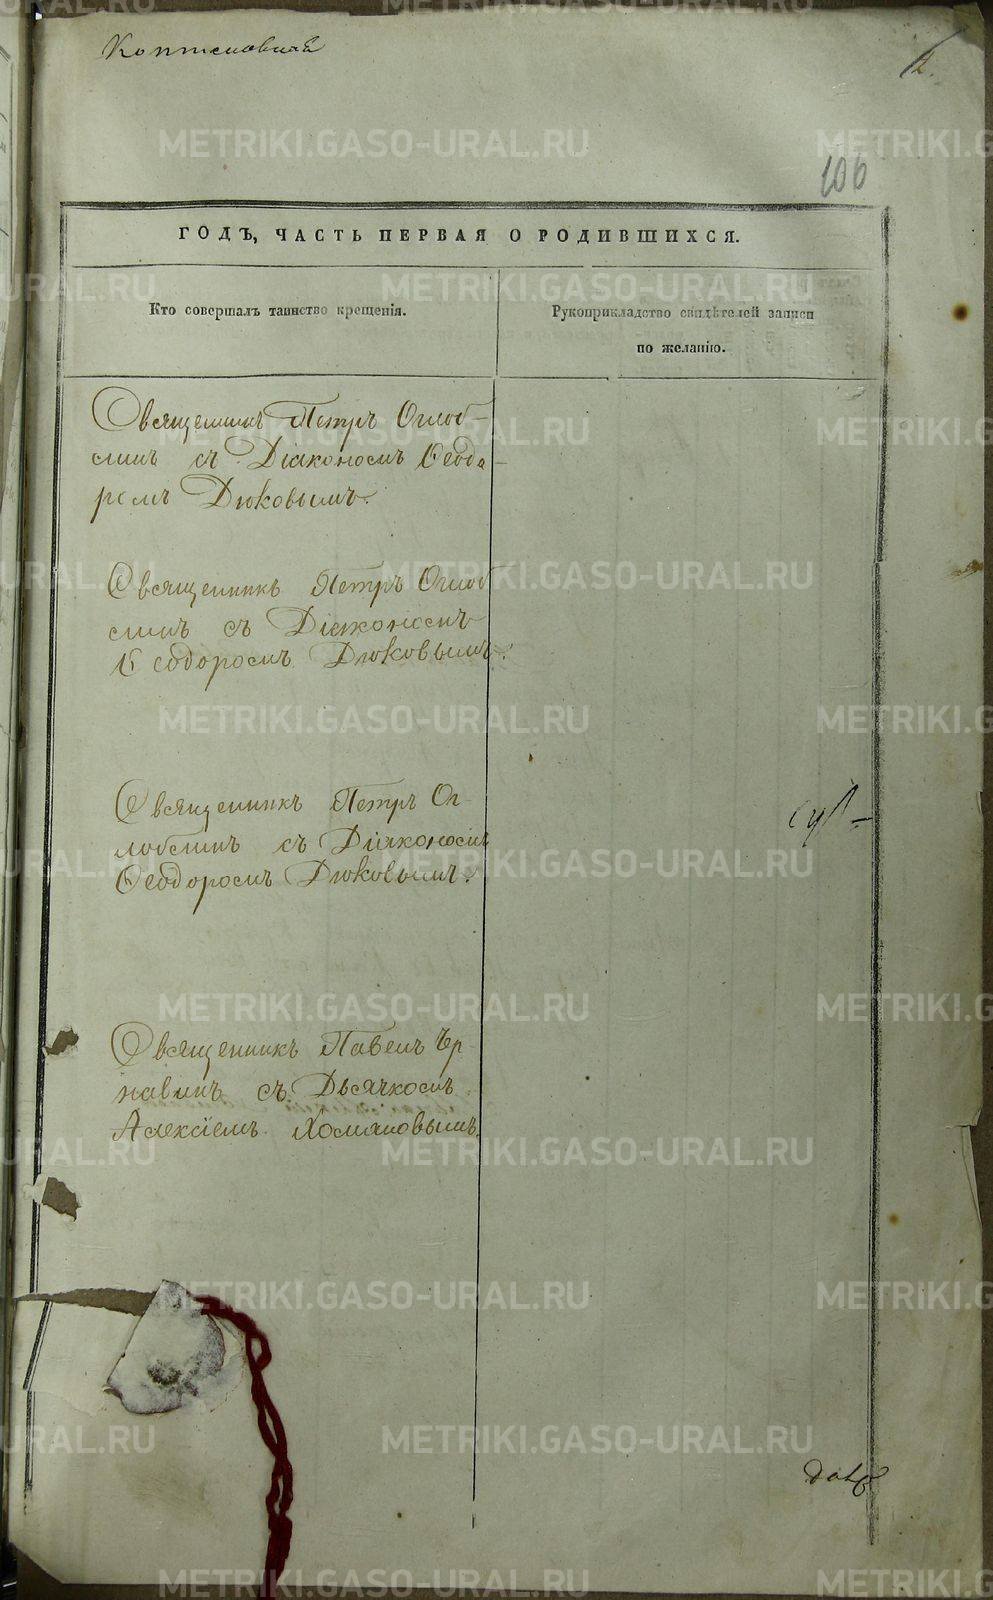 Коптеловской
2.
106
ГОДЪ, ЧАСТЬ ПЕРВАЯ О РОДИВШИХСЯ.
Кто совершалъ таинство крещенія.
Рукоприкладство свидѣтелей записи
по желанію.
Священникъ Петръ Оглоб-
линъ съ Діакономъ Ѳеодо-
ромъ Дюковымъ.
Священникъ Петръ Оглоб
линъ съ Діакономъ
Ѳеодоромъ Дюковымъ.
Священникъ Петръ Ог-
лоблинъ съ Діакономъ
Ѳеодоромъ Дюковымъ.
Священникъ Павелъ Чер
навинъ съ Дьячкомъ
Алексіемъ Хомяковымъ.
METRIKI.GASO-URAL.RU